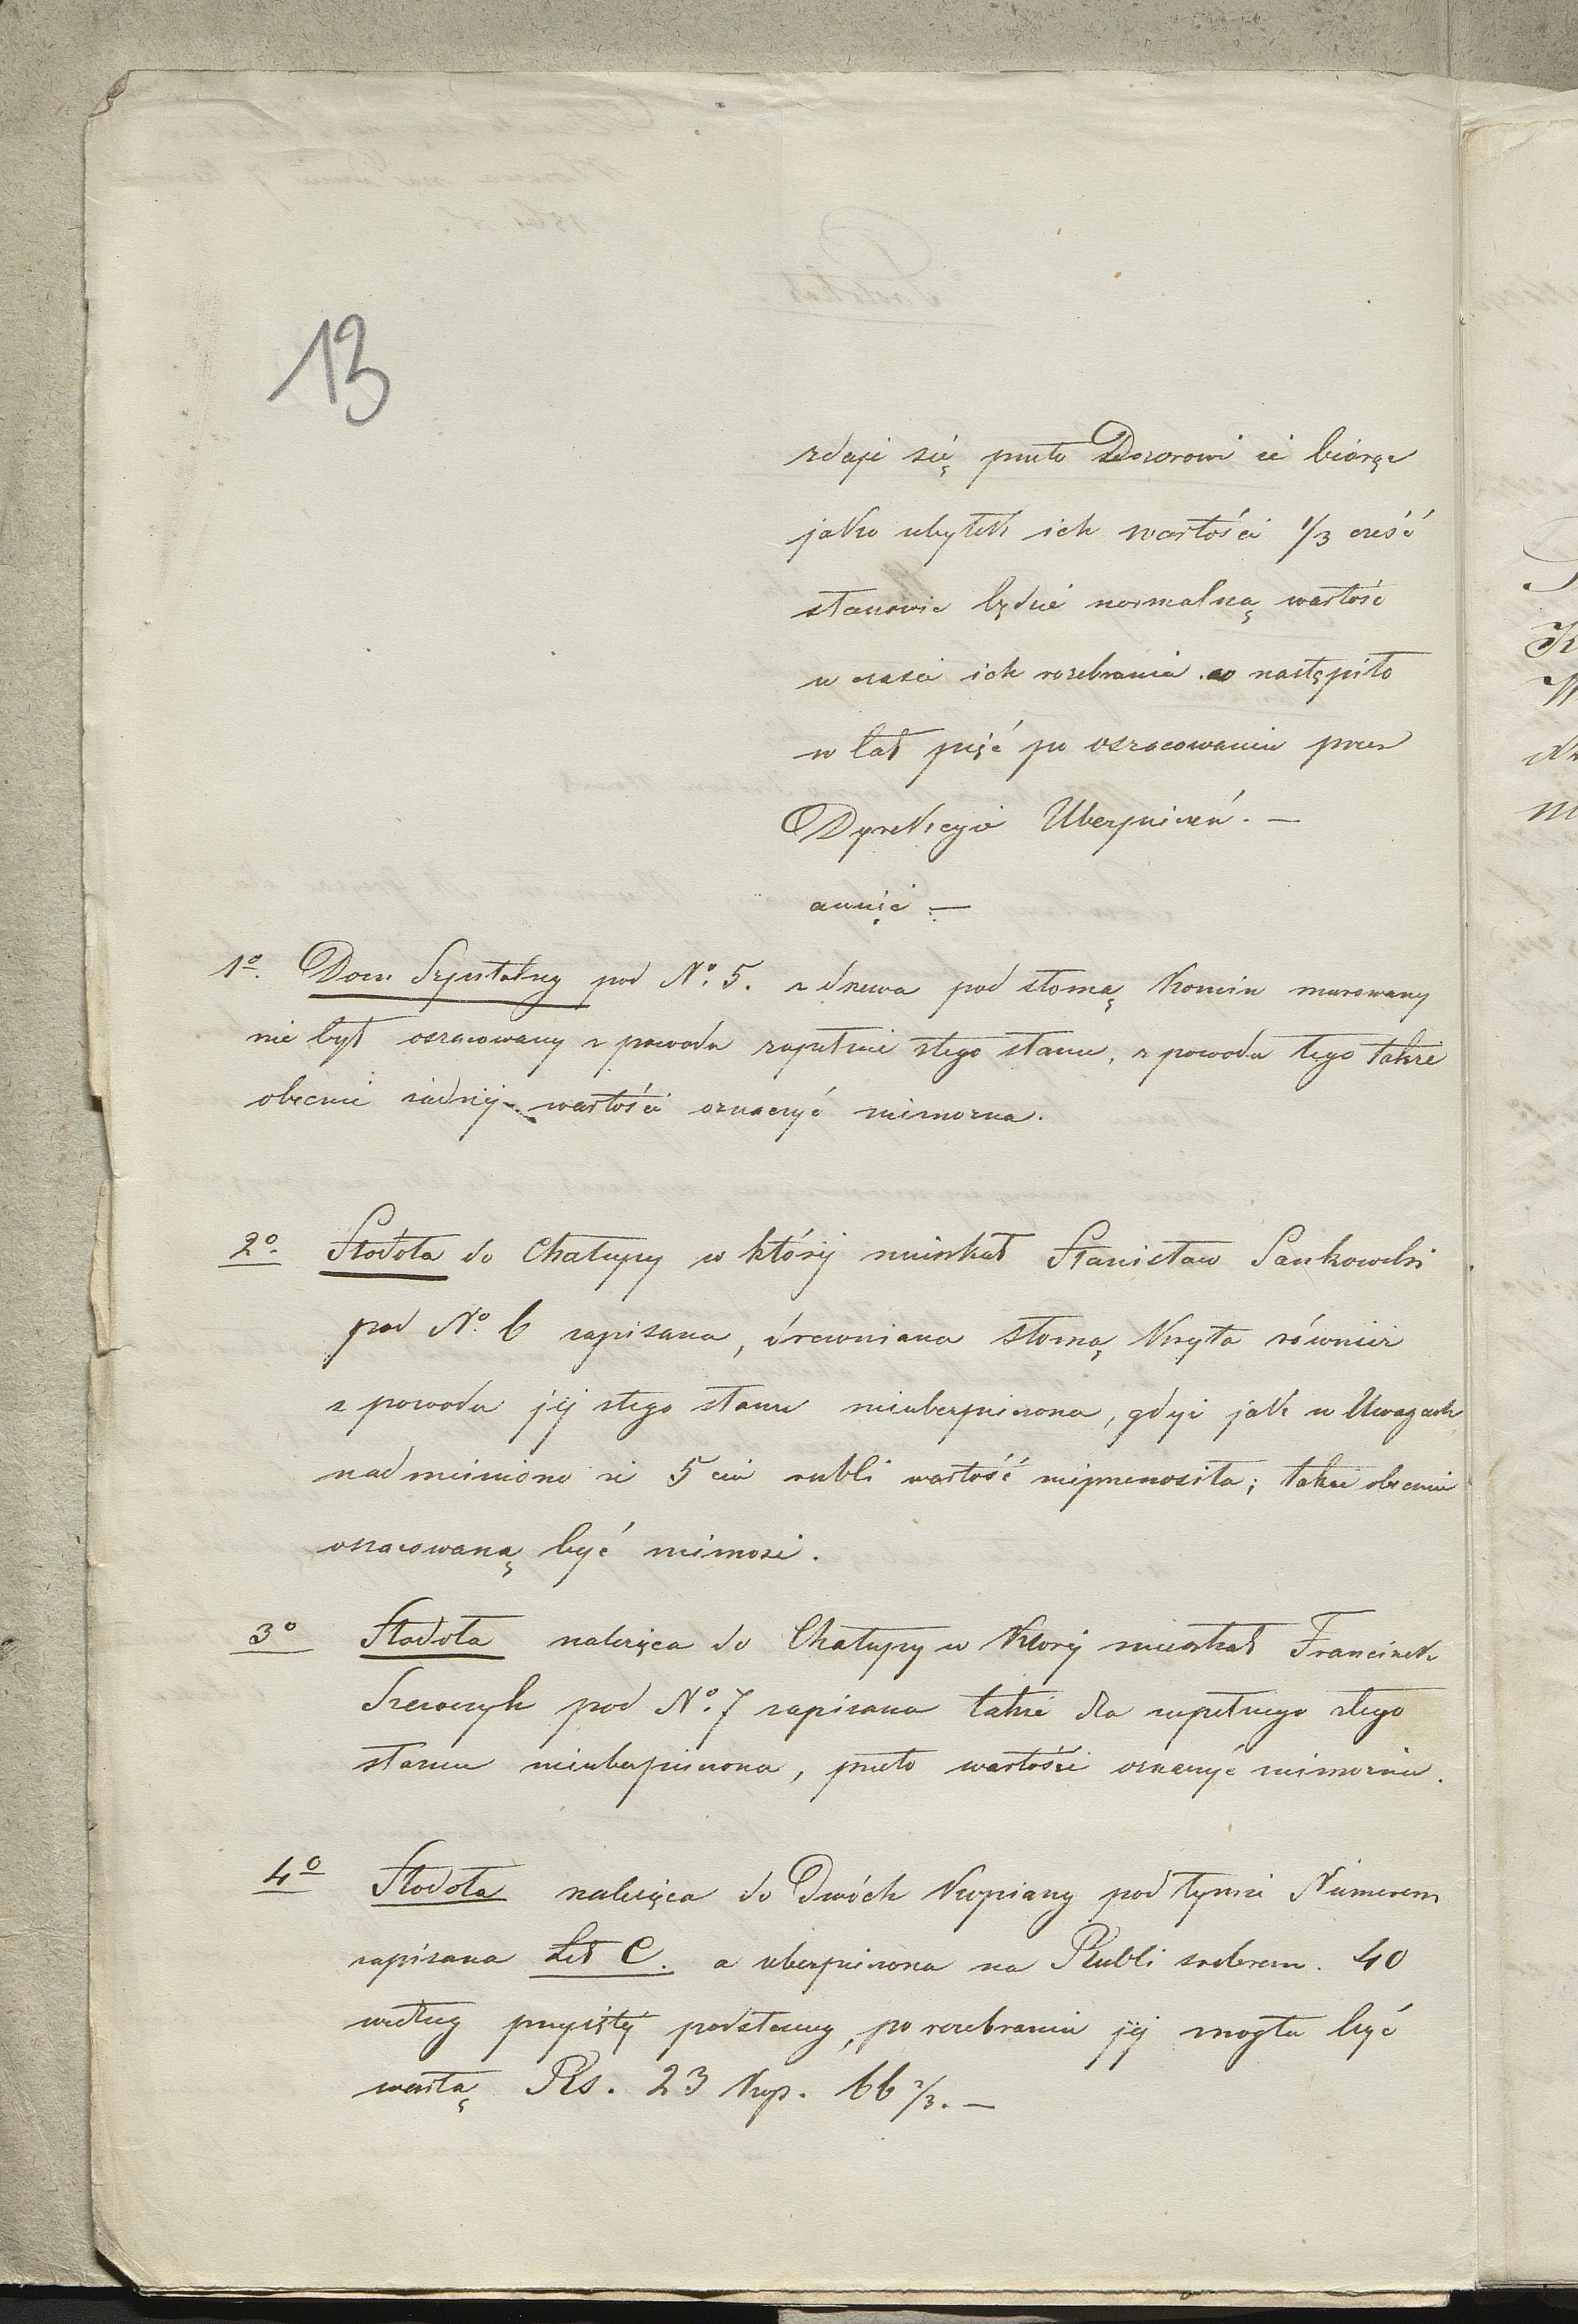 13
zdaje się przeto Dozorowi że biorąc
jako ubytek ich wartości 1/3 cześć
stanowić będzie normalną wartość
w czasie ich rozebrania co nastąpiło
w lat pięć po oszacowaniu przez
Dyrekcyie Ubezpieczeń. —
a więc —
1º. Dom Szpitalny pod Nº. 5. z drzewa pod słomą komin murowany
nie był oszacowany z powodu zupełnie złego stanu, z powodu tego także
obecnie żadnej wartości oznaczyć niemożna.
2º. Stodoła do Chałupy w której mieszkał Stanisław Sankowski
pod Nº. 6 zapisana, drewniana słomą kryta również
z powodu jej złego stanu nieubezpieczona, gdyż jak w Uwagach
nadmieniono że 5 ciu rubli wartość nieprzenosiła; także obecnie
oszacowaną być niemoże.
3º Stodoła należąca do Chałupy w ktorej mieszkał Franciszek
Szewczyk pod Nº. 7 zapisana także dla zupełnego złego
stanu nieubezpieczona, przeto wartości oznaczyć niemożna.
4º Stodoła należąca do Dwóch pod tymże Numerem
zapisana Lit C. a ubezpieczona na Rubli srebrem. 40
według przyjętej podstawy, po rozebraniu jej mogła być
wartą Rs. 23 kop. 66 2/3. —